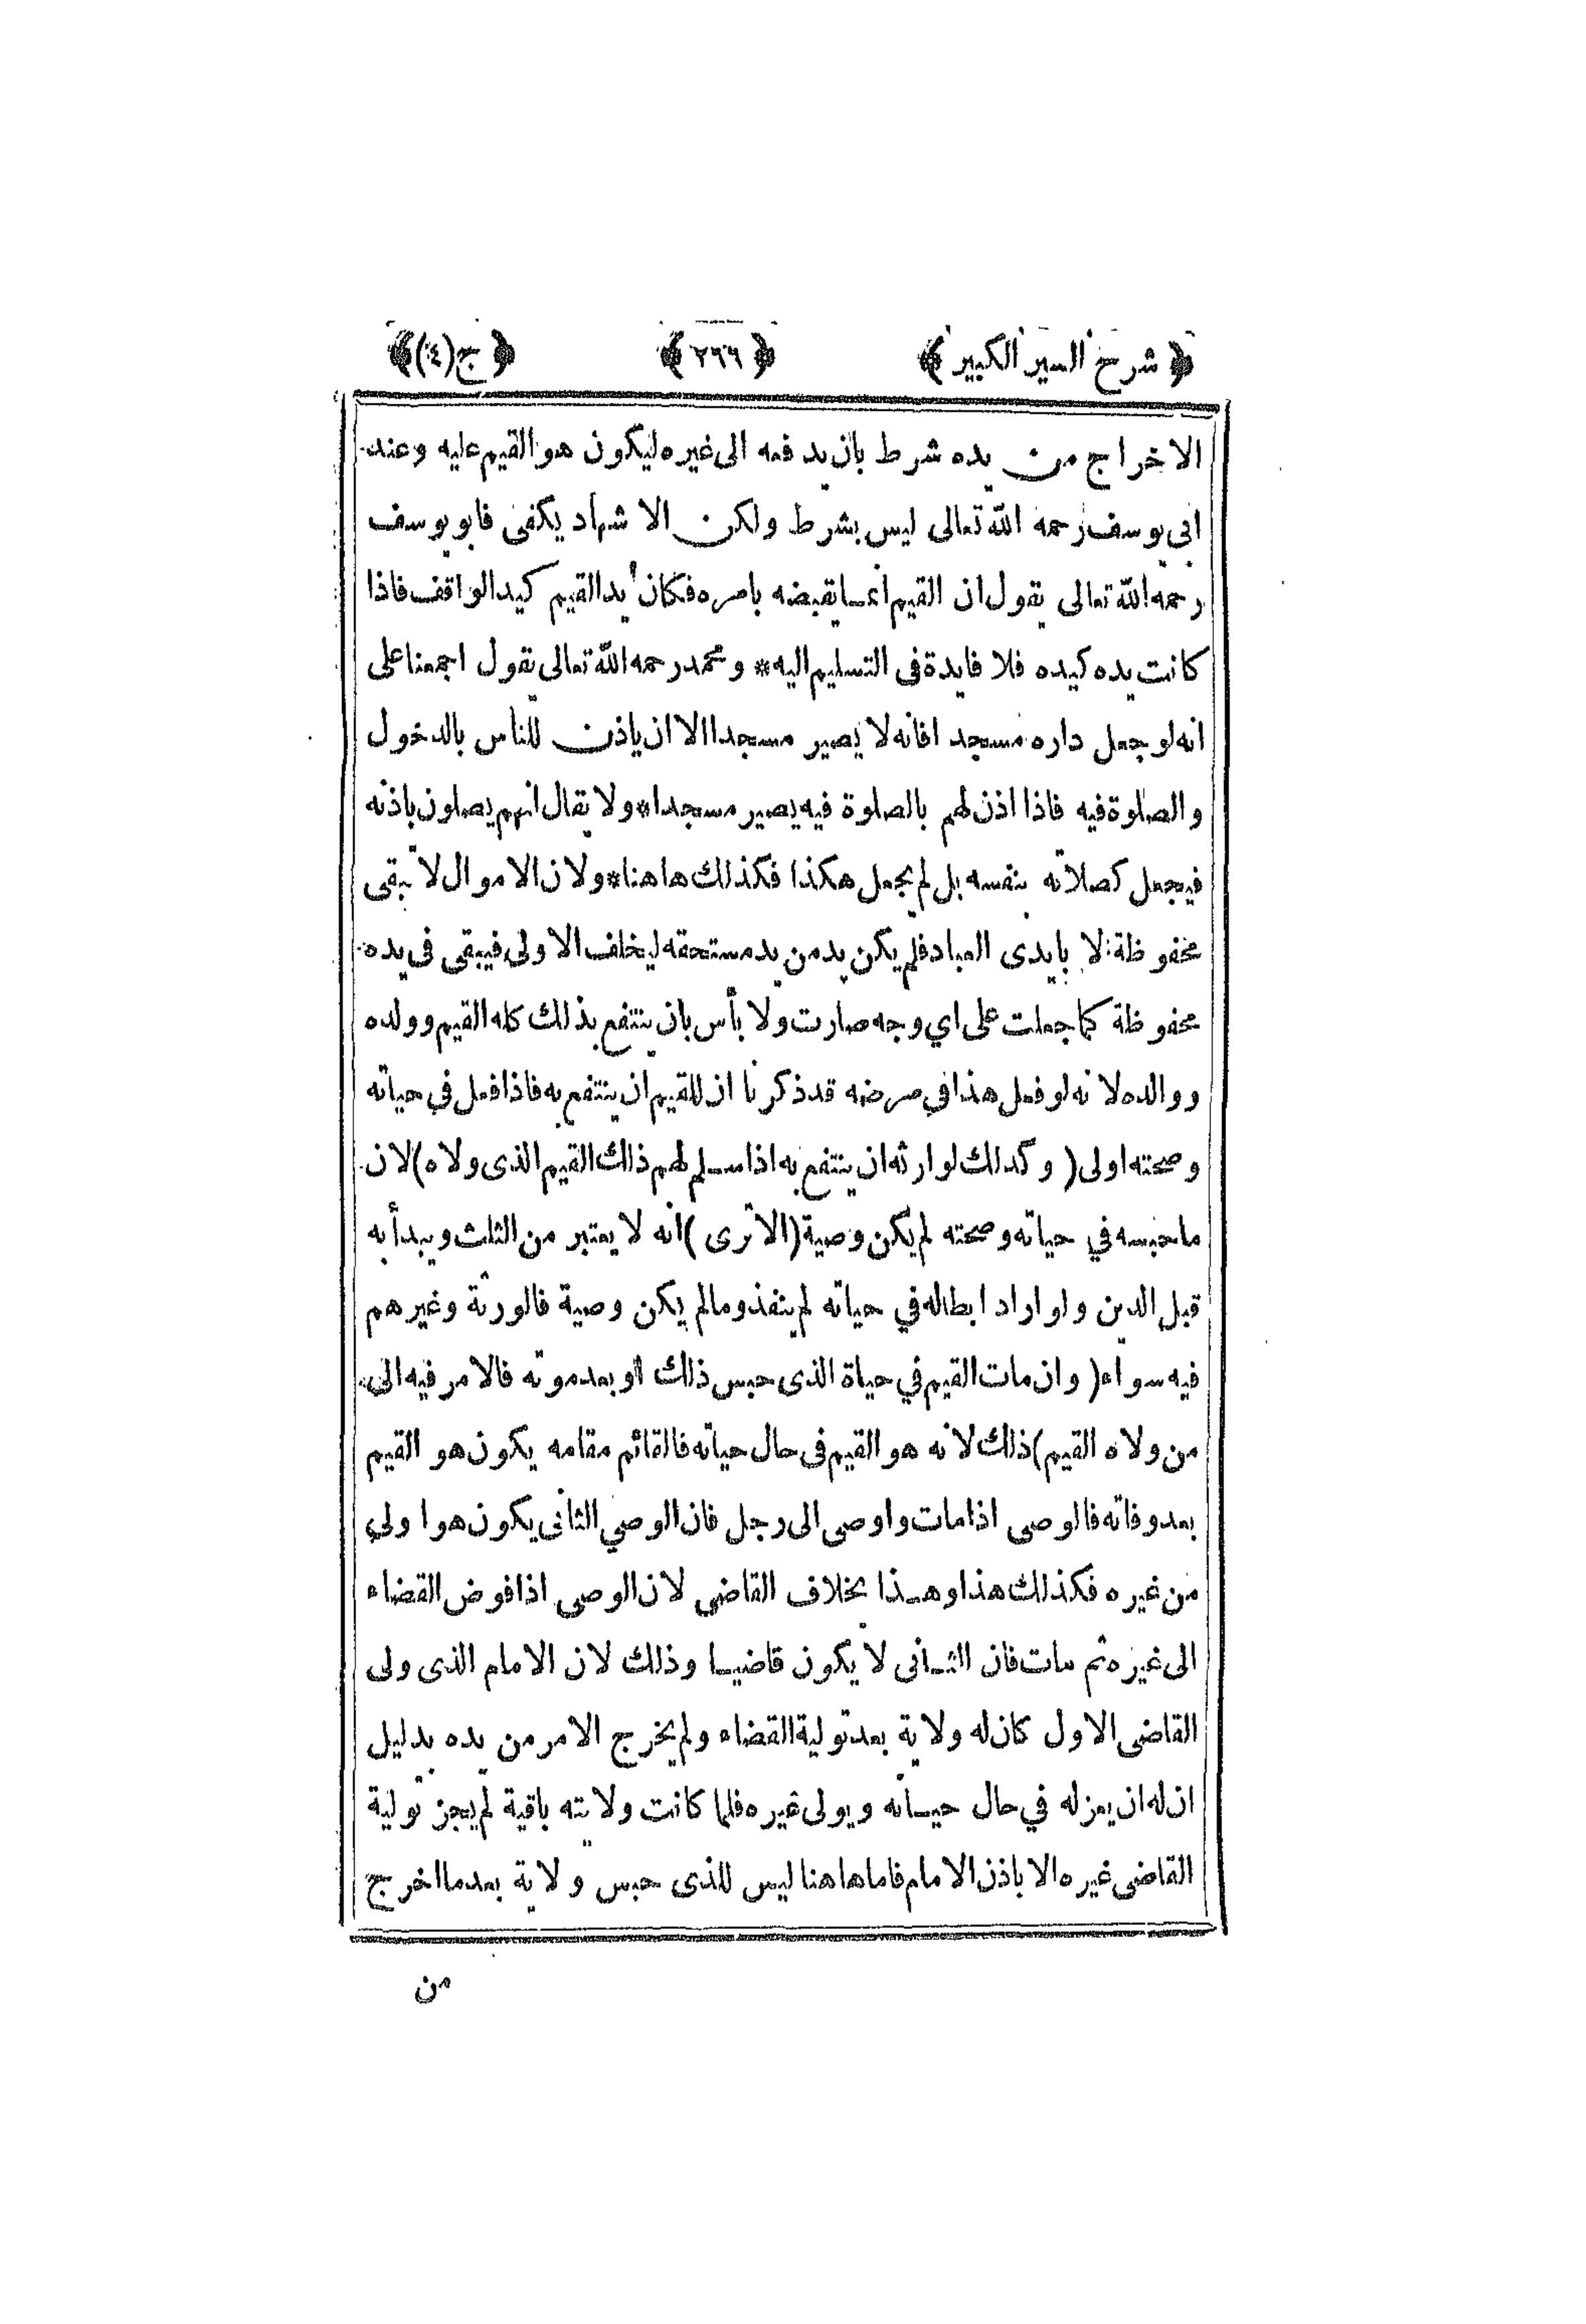 ﴿ شرح السير الكبير ﴾ ﴿ ٢٦٦ ﴾ ﴿ ج (٤) ﴾
الاخراج من يده شرط بان يدفعه الى غيره ليكون هو القيم عليه وعند
ابى يوسف رحمه الله تعالى ليس بشرط ولكن الاشهاد يكفى فابو يوسف
رحمه الله تعالى يقول ان القيم انما يقبضه بامره فكان يد القيم كيد الواقف فاذا
كانت يده كيده فلا فايدة فى التسليم اليه * ومحمد رحمه الله تعالى يقول اجمعنا على
انه لو جعل داره مسجدا فانه لا يصير مسجدا الا ان ياذن للناس بالدخول
والصلوة فيه فاذا اذن لهم بالصلوة فيه يصير مسجدا * ولا يقال انهم يصلون باذنه
فيجعل كصلاته بنفسه بل لم يجعل هكذا فكذلك هاهنا * ولان الاموال لا تبقى
محفوظة الا بايدى العباد فلم يكن بد من يد مستحقه ليخلف الاولى فيبقى فى يده
محفوظة كما جعلت على اي وجه صارت ولا بأس بان ينتفع بذلك كله القيم وولده
ووالده لانه لو فعل هذا في مرضه قد ذكرنا ان للقيم ان ينتفع به فاذا فعل في حياته
وصحته اولى ( وكذلك لوارثه ان ينتفع به اذا سلم لهم ذلك القيم الذى ولاه ) لان
ما حبسه في حياته وصحته لم يكن وصية ( الا ترى ) انه لا يعتبر من الثلث ويبدأ به
قبل الدين ولو اراد ابطاله في حياته لم ينفذ وما لم يكن وصية فالورثة وغيرهم
فيه سواء ( وان مات القيم في حياة الذى حبس ذلك او بعد موته فالامر فيه الى
من ولاه القيم ) ذلك لانه هو القيم فى حال حياته فالقائم مقامه يكون هو القيم
بعد وفاته فالوصى اذا مات واوصى الى رجل فان الوصي الثانى يكون هو اولي
من غيره فكذلك هذا وهذا بخلاف القاضي لان الوصى اذا فوض القضاء
الى غيره ثم مات فان الثانى لا يكون قاضيا وذلك لان الامام الذى ولى
القاضى الاول كان له ولاية بعد تولية القضاء ولم يخرج الامر من يده بدليل
ان له ان يعزله في حال حياته ويولى غيره فلما كانت ولايته باقية لم يجز تولية
القاضى غيره الا باذن الامام فاما هاهنا ليس للذى حبس ولاية بعد ما اخرج
من